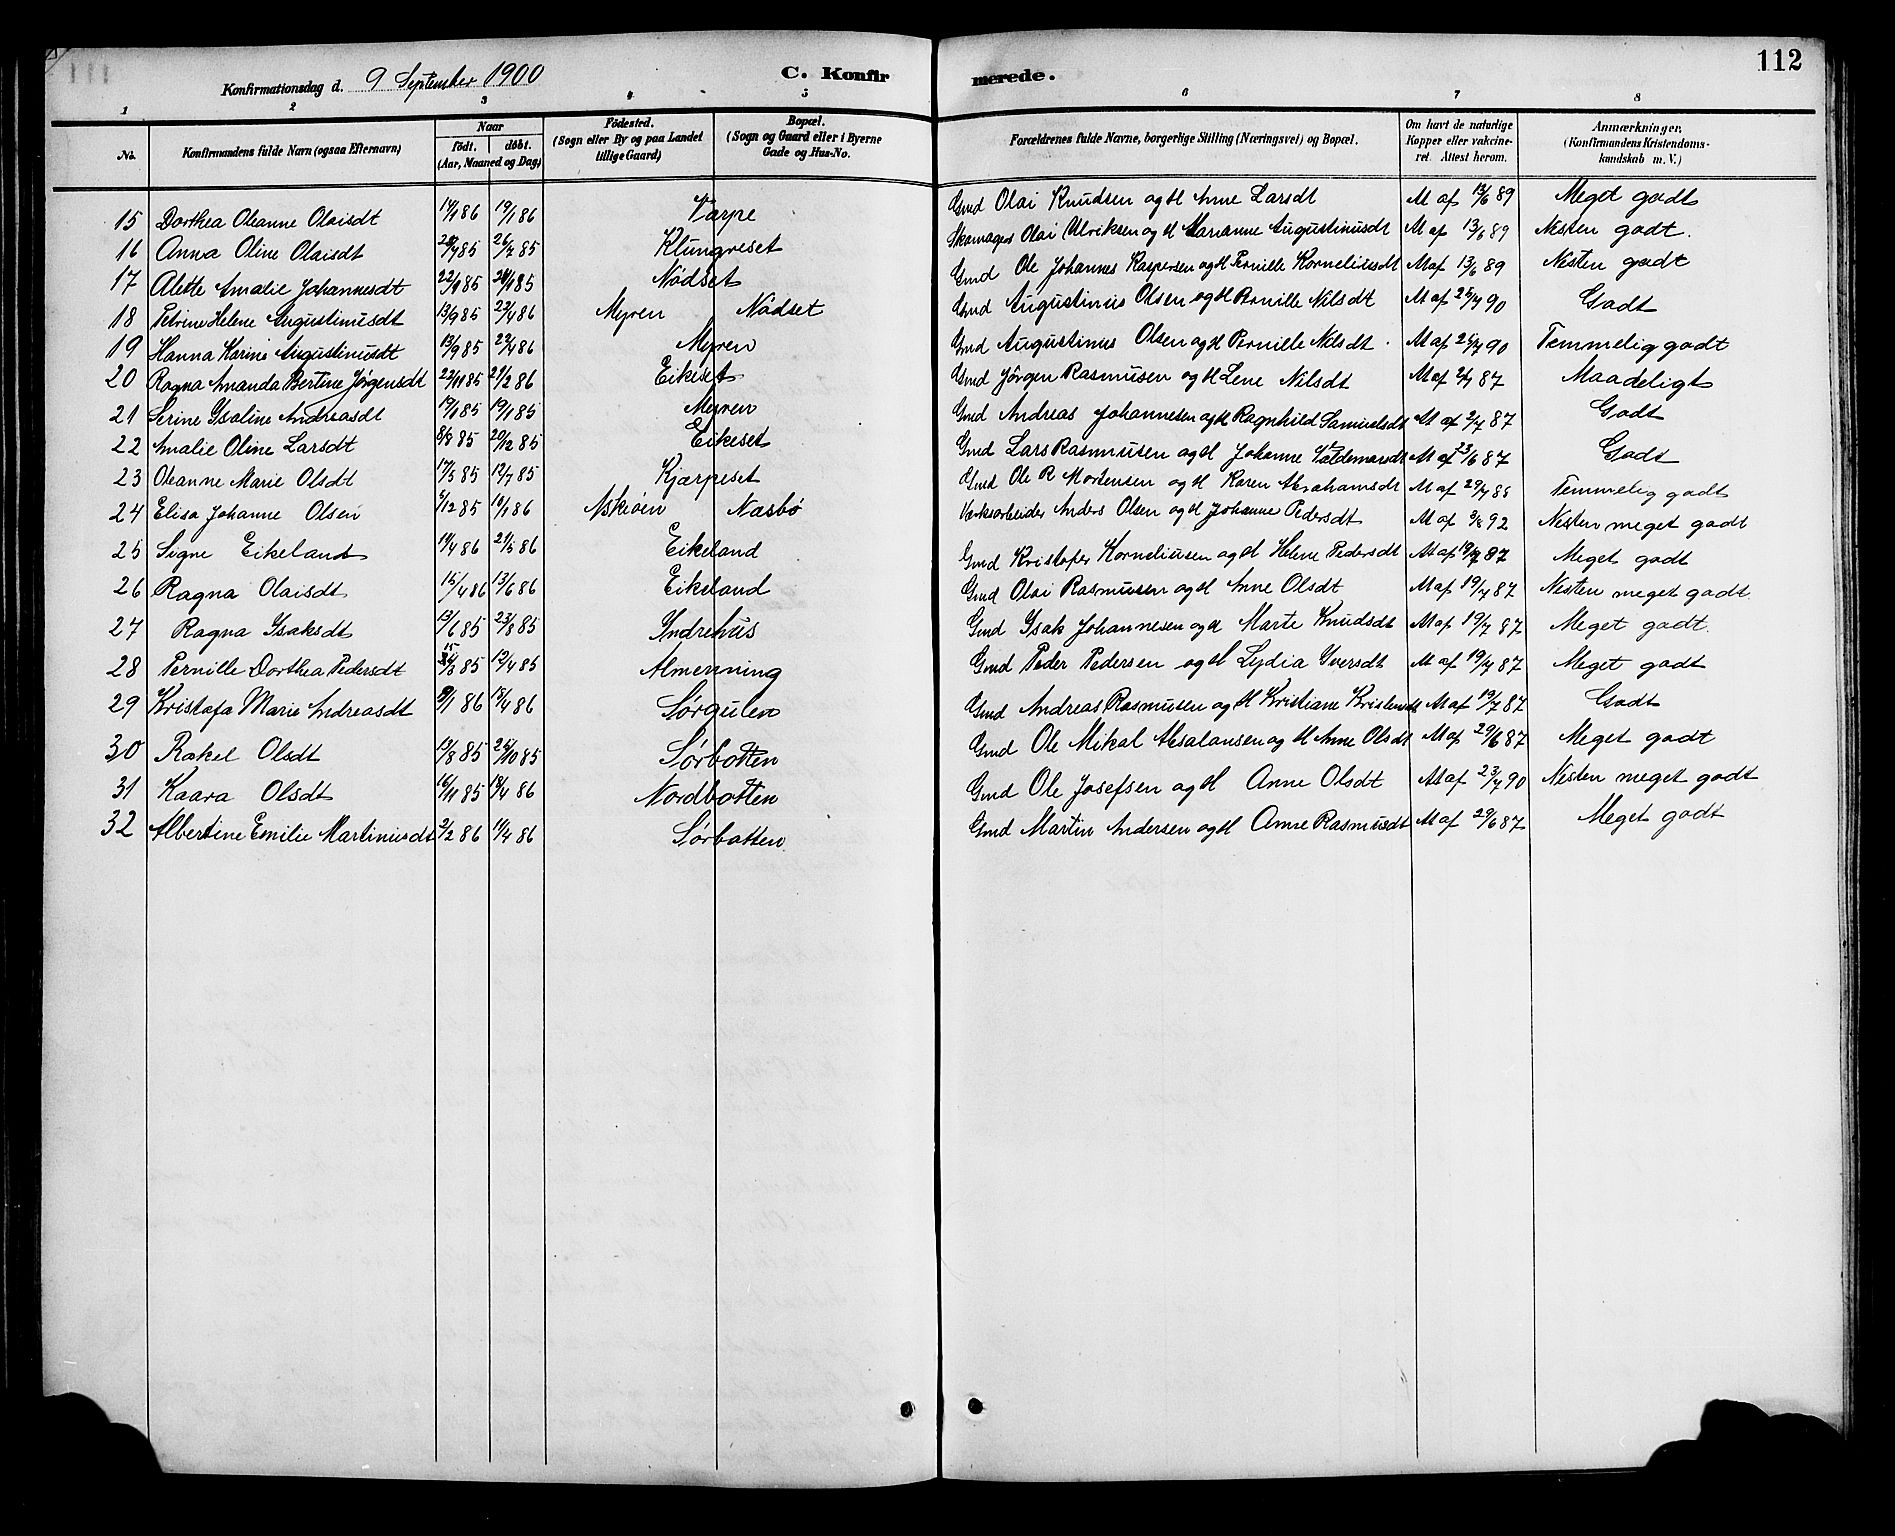 112
Konfirmationsdag d. 9 September 1900 C. Konfirmerede.
1 2 3 4 5 6 7 8
No. Konfirmandens fulde Navn (ogsaa Efternavn) Naar født. døbt. (Aar, Maaned og Dag) Fødested. (Sogn eller By og paa Landet tillige Gaard) Bopæl. (Sogn og Gaard eller i Byerne Gade og Hus-No. Forældrenes fulde Navne, borgerlige Stilling (Næringsvei) og Bopæl. Om havt de naturlige Kopper eller vakcineret. Attest herom. Anmærkninger. (Konfirmandens Kristendomskundskab m. V.)
15 Dorthea Oleanne Olaisdt 14/1 86 19/1 86 Varpe Gmd Olai Knudsen og H Anne Larsdt M af 13/6 89 Meget godt
16 Anna Oline Olaisdt 85 26/7 85 Klungreset Skomager Olai Ulriksen og H Marianne Augustinusdt M af 13/6 89 Nesten godt.
17 Alette Amalie Johannesdt 85 85 Nødset Gmd Ole Johannes Kaspersen og H Pernille Korneliusdt M af 13/6 89 Nesten godt
18 Petrine Helene Augustinusdt 13/9 85 22/4 86 Myren Nødset Gmd Augustinus Olsen og H Pernille Nilsdt M af 25/7 90 Godt
19 Hanna Karine Augustinusdt 13/9 85 22/4 86 Myren Gmd Augustinus Olsen og H Pernille Nilsdt. M af 25/7 90 Temmelig godt
20 Ragna Amanda Bertine Jørgensdt 22/11 85 21/2 86 Eikeset Gmd Jørgen Rasmusen og H Lene Nilsdt M af 2/7 87 Maadeligt
21 Serine Ysaline Andreasdt 19/1 85 19/1 85 Myren Gmd Andreas Johannesen og H Ragnhild Samuelsdt M af 2/7 87 Godt
22 Amalie Oline Larsdt 8/8 85 20/12 85 Eikeset Gmd Lars Rasmusen og H Johanne Valdemarsdt M af 23/6 87 Godt
23 Oleanne Marie Olsdt 17/5 85 12/7 85 Kjærpeset Gmd Ole R Mortensen og H Karen Abrahamsdt M af 29/7 Temmelig godt
24 Elisa Johanne Olsen 5/12 85 10/1 86 Askøen Næsbø Verksarbeider Anders Olsen og H Johanne Pedersdt M af 92 Nesten meget godt
25 Signe Eikeland 11/4 86 21/5 86 Eikeland Gmd Kristofer Korneliusen og H Helene Pedersdt M af 19/7 87 Meget godt
26 Ragna Olaisdt 15/4 86 13/6 86 Eikeland Gmd Olai Rasmusen og H Anne Olsdt M af 19/7 87 Nesten meget godt.
27 Ragna Ysaksdt 13/6 85 23/8 85 Indrehus Gmd Ysak Johannesen og H Marte Knudsdt M af 19/7 87 Meget godt.
28 Pernille Dorthea Pedersdt 15/3 85 12/4 85 Almenning Gmd Peder Pedersen og H Lydia Yversdt M af 19/7 87 Meget godt
29 Kristofa Marie Andreasdt 9/1 86 18/4 86 Sørgulen Gmd Andreas Rasmusen og H Kristiane Kristensdt M af 19/7 87 Godt
30 Rakel Olsdt 19/8 85 25/10 85 Sørbotten Gmd Ole Mikal Absalonsen og H Anne Olsdt M af 29/6 87 Meget godt
31 Kaara Olsdt 16/11 85 18/4 86 Nordbotten Gmd Ole Josefsen og H Anne Olsdt M af 23/7 90 Nesten meget godt
32 Albertine Emilie Martinusdt 2/2 86 11/4 86 Sørbotten. Gmd Martin Andersen og H Anne Rasmusdt M af 29/6 87 Meget godt